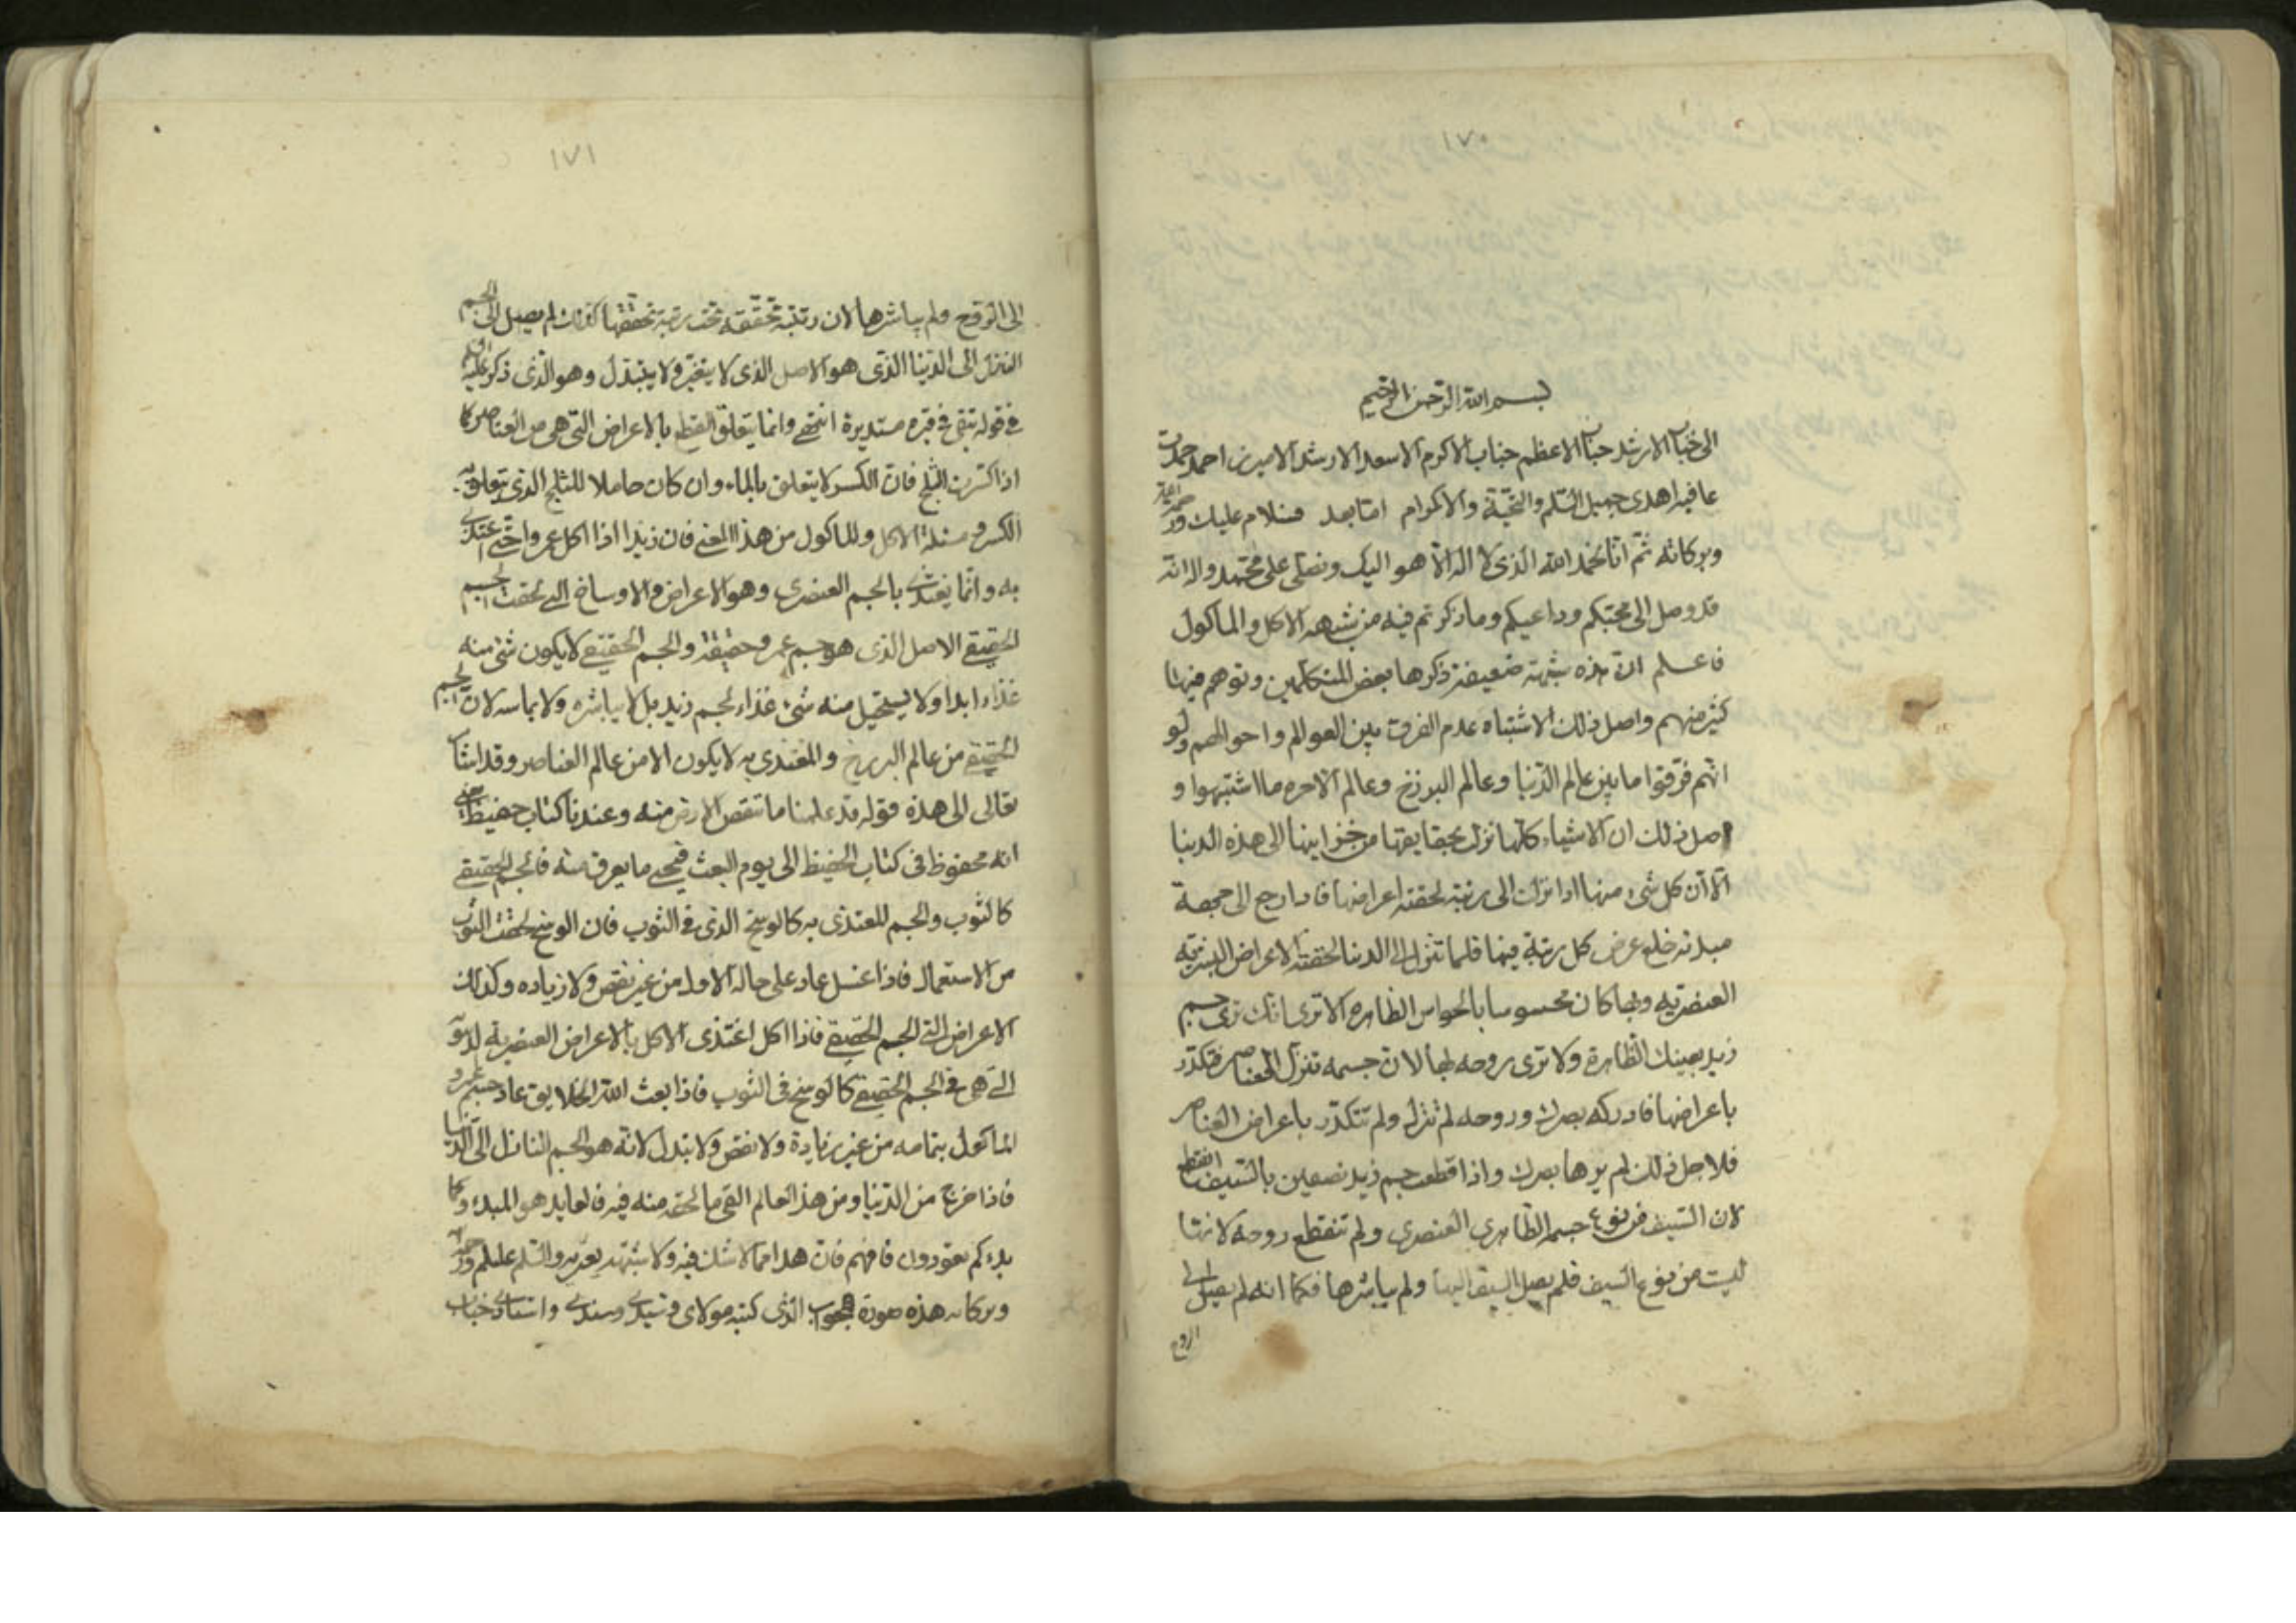 ١٧٠
بسم الله الرحمن الرحيم
الى جناب الارشد جناب الاعظم جناب الاكرم الاسعد الارشد الاميرزا احمد حمدت
عاقبه اهدى جميل السلم والتحية والاكرام اما بعد فسلام عليك ورحمة الله
وبركاته ثم انا نحمد الله الذى لا اله الا هو اليك ونصلى على محمد واله انه
قد وصل الى محبكم وداعيكم وما ذكرتم فيه من شبهه الاكل والماكول
فاعلم ان هذه شبهة ضعيفة ذكرها بعض المتكلمين وتوهم فيها
كثير منهم واصل ذلك الاشتباه عدم الفرق بين العوالم واحوالهم ولو
انهم فرقوا ما بين عالم الدنيا وعالم البرزخ وعالم الاخره ما اشتبهوا و
اصل ذلك ان الاشياء كلها نزلت بحقايقها من خزاينها الى هذه الدنيا
الا ان كل شىء منها اذا نزلت الى رتبة لحقته اعراضها فاذا رجع الى جهة
مبدئه خلع عرض كل رتبة فيها فلما تنزل الى الدنيا لحقته الاعراض البشرية
العنصريه وبها كان محسوسا بالحواس الظاهره الا ترى انك ترى جسم
زيد بعينك الظاهرة ولا ترى روحه بها لان جسمه تنزل الى العناصر فتكدر
باعراضها فادركه بصرك وروحه لم تنزل ولم تتكدر باعراض العناصر
فلاجل ذلك لم يرها بصرك واذا قطعت جسم زيد نصفين بالسيف انقطع
لان السيف من نوع جسم الظاهرى العنصرى ولم تنقطع روحه لانها
ليست من نوع السيف فلم يصل السيف اليها ولم يباشرها فكما انه لم يصل الى
الروح
١٧١
الى الروح ولم يباشرها لان رتبة تحققه تحت رتبة تحققها كذلك لم يصل الى الجسم
النزل الى الدنيا الذى هو الاصل الذى لا يتغير ولا يتبدل وهو الذى ذكر عليه
فى قوله تبقى فى قبره مستديرة انتهى وانما يتعلق القطع بالاعراض التى هى من العناصر كما
اذا كسرت الثلج فان الكسر لا يتعلق بالماء وان كان حاملا للثلج الذى يتعلق به
الكسر و مسئلة الاكل والماكول من هذا المعنى فان زيدا اذا اكل عمروا حتى اغتذى
به وانما يغتذى بالجسم العنصرى وهو الاعراض والاوساخ التى لحقت الجسم
الحقيقى الاصل الذى هو جسم عمرو حقيقة والجسم الحقيقى لا يكون شئ منه
غذاء ابدا ولا يستحيل منه شئ غذاء لجسم زيد بل لا يباشره ولا يماسه لان الجسم
الحقيقى من عالم البرزخ والمغتذى به لا يكون الا من عالم العناصر وقد اشار
تعالى الى هذه قوله قد علمنا ما تنقص الارض منه وعندنا كتاب حفيظ
انه محفوظ فى كتاب الحفيظ الى يوم البعث فيحيى ما يعرف منه فالجسم الحقيقى
كالثوب والجسم المغتذى به كالوسخ الذى فى الثوب فان الوسخ لحقت الثوب
من الاستعمال فاذا غسل عاد على حاله الاول من غير نقص ولا زياده وكذلك
الاعراض التى الجسم الحقيقى فاذا اكل اغتذى الاكل بالاعراض العنصريه
التى هى فى الجسم الحقيقى كالوسخ فى الثوب فاذا بعث الله الخلايق عاد جسم عمرو
الماكول بتمامه من غير زيادة ولا نقص ولا تبدل لانه هو الجسم النازل الى الدنيا
فاذا خرج من الدنيا ومن هذا العالم القى ما لحقه منه فيه فالعايد هو المبدء وكما
بدءكم تعودون فافهم فان هذا مما لا شك فيه ولا شبهة تعتريه والسلم عليكم ورحمة الله
وبركاته هذه صورة الجواب الذى كتبه مولاى وسيدى وسندى واستادى جناب